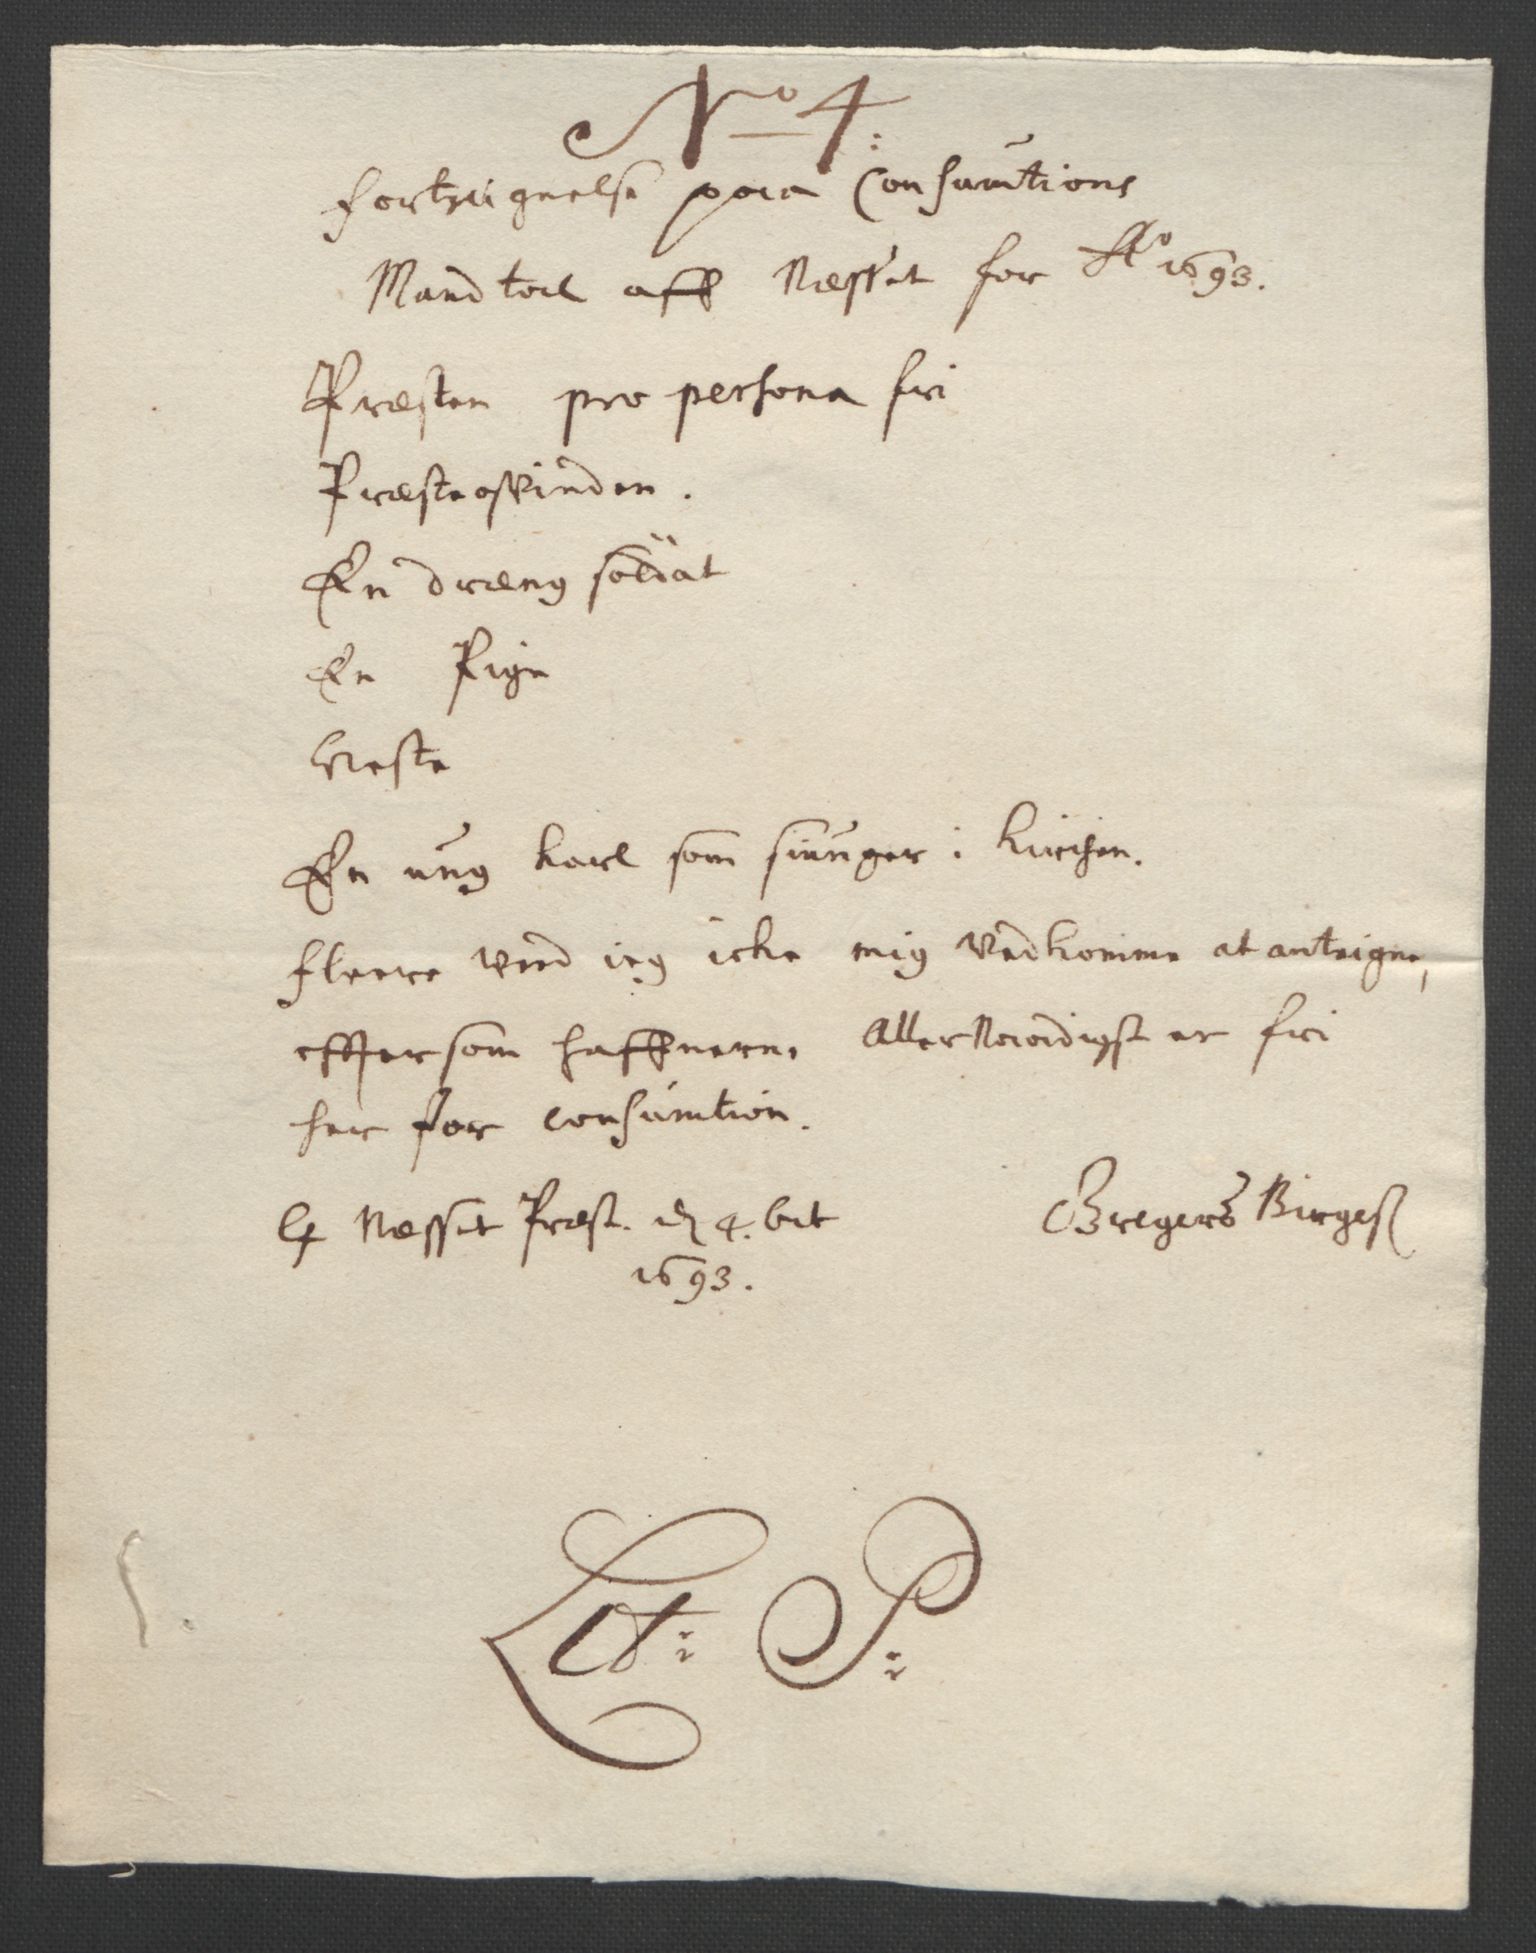 No 4:
Forteignelse paa Consumtions
Mandtal aff Næsset for Ao 1693.
Præsten pro persona fri
Præsteqvinden.
En dræng soldat
En Pige
Næste
En ung karl som siunger i kirchen.
Fleere veed ieg icke mig vedkomme at anteigne,
efftersom haffnerne Allernaadigst er fri
her for consumtion.
Næsset Præst. d 4. 8br
1693.
Gregers Birges
Lit: P: